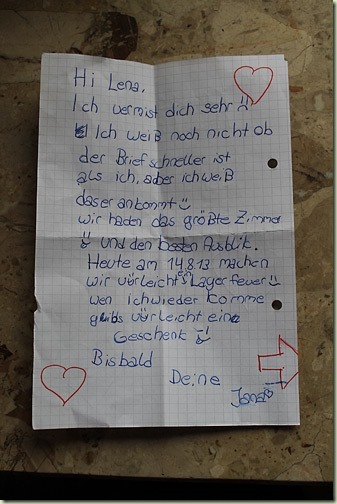 Hi Lena,
Ich vermist dich sehr
Ich weiß noch nicht ob
der Brief schneller ist
als ich, aber ich weiß
das er ankommt
wir haden das größte Zimmer
und den besten Ausblik.
Heute am 14.8.13 machen
wir vürleicht ein Lagerfeuer
wen ich wieder komme
gibs vürleicht eine
Geschenk
Bis bald
Deine
Jana